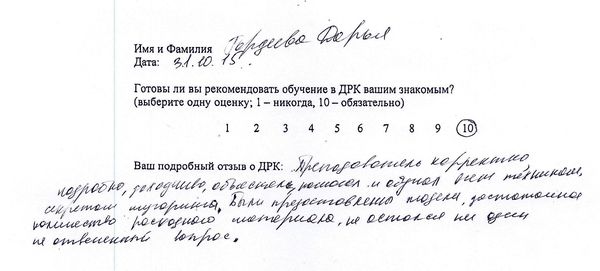 Имя и Фамилия Гордеева Дарья
Дата: 31.10.15.
Готовы ли вы рекомендовать обучение в ДРК вашим знакомым?
(выберите одну оценку; 1 – никогда, 10 – обязательно)
1 2 3 4 5 6 7 8 9 10
Ваш подробный отзыв о ДРК: Преподователь корректно,
подробно, доходчиво, объяснял, показал и обучал всем техникам,
секретам шугаринга. Были предоставлены модели, достаточное
количество расходного материала, не остался ни один
не отвеченный вопрос.